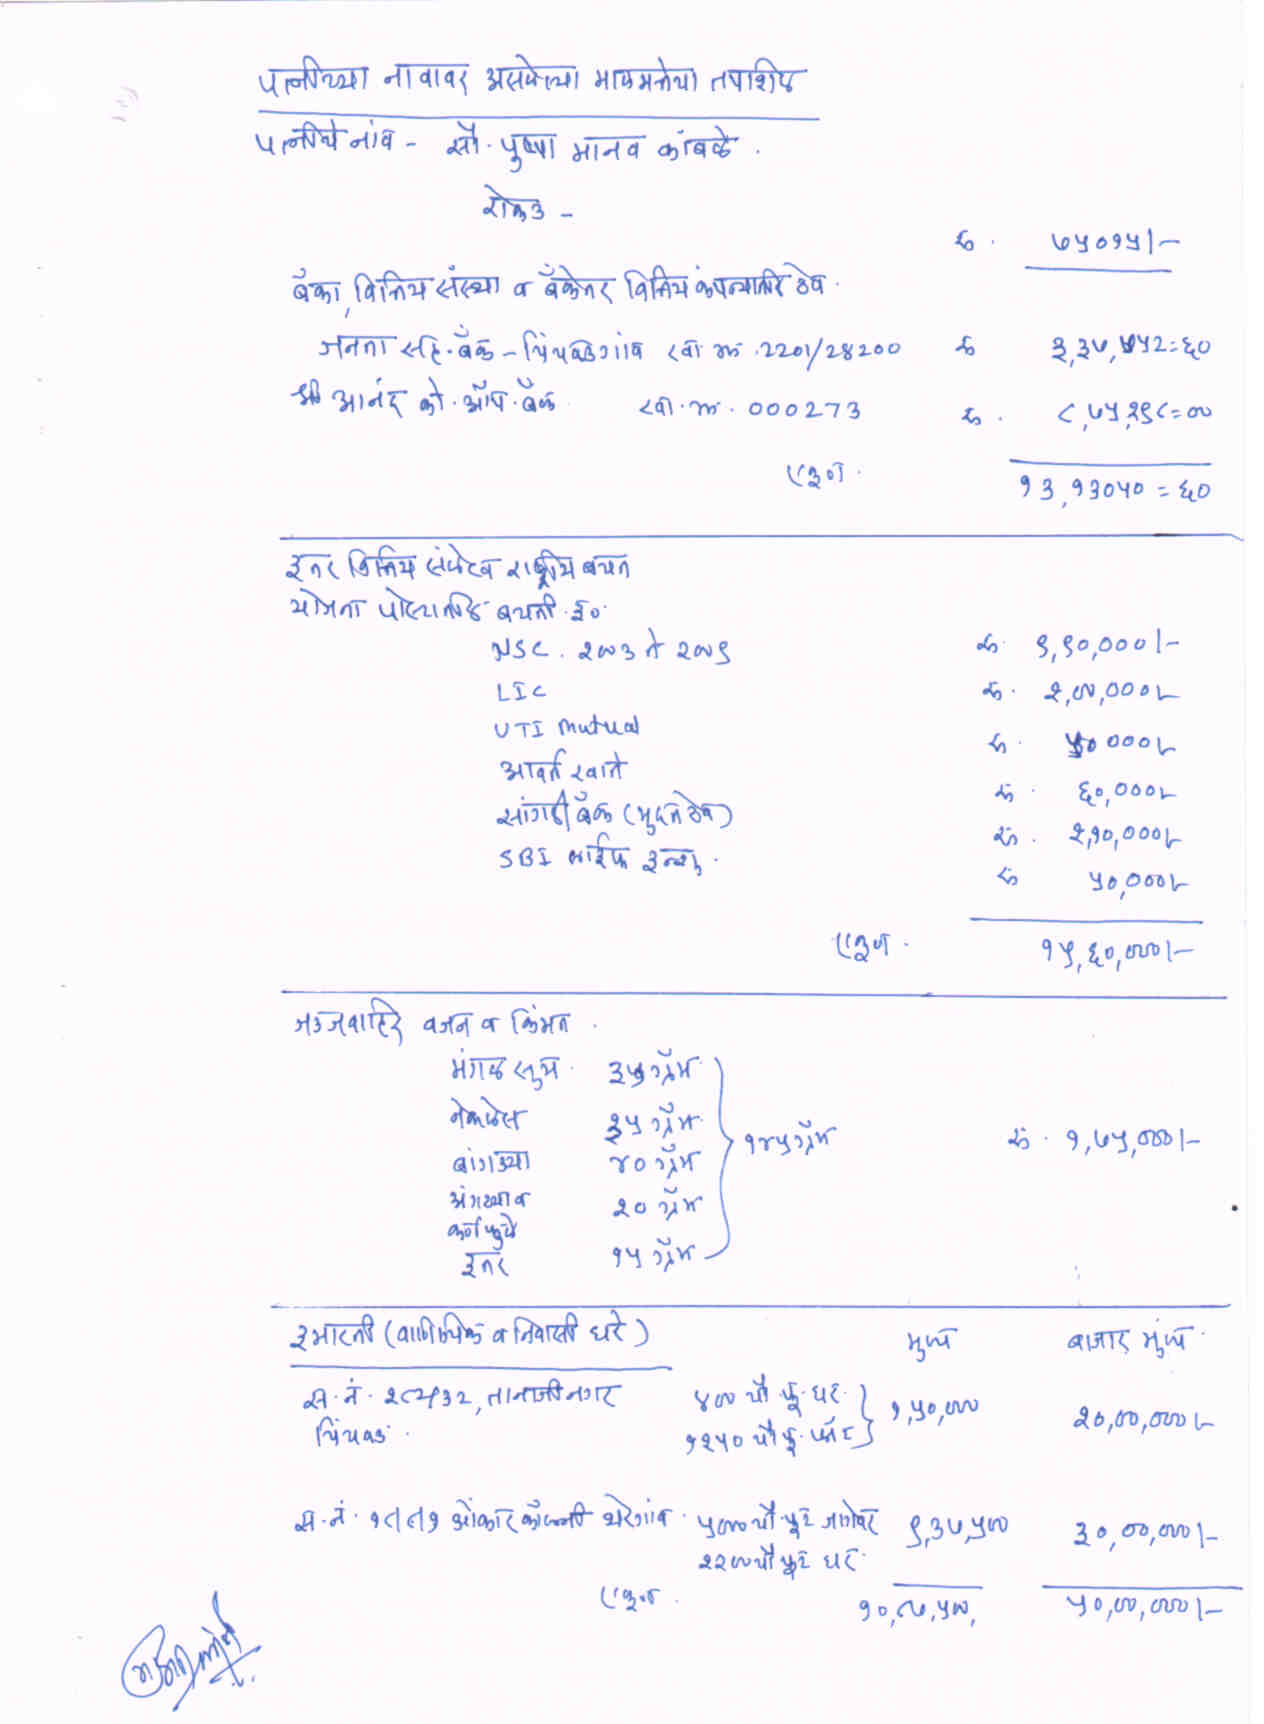 पत्नीच्या नावावर असलेल्या मालमत्तेचा तपशिल
पत्नीचे नांव - सौ. पुष्पा मानव कांबळे .
रोकड -
रु . ७५०१५/-
बँका, वित्तिय संस्था व बँकेतर वित्तिय कंपन्यातील ठेव.
जनता सह. बँक - पिंपळेगांव खा क्र. 2201/28200 रु ३,३७,७५२=६०
श्री आनंद को. ऑप. बँक. खा. क्र. 000273 रु . ८,७५,२९८=००
एकूण. १३,१३०५०=६०
इतर वित्तिय संस्थेत राष्ट्रीय बचत
योजना पोस्टातील बचती. इ०.
NSC . २००३ ते २००९ रु. ९,९०,०००/-
LIC रु. २,००,०००/-
UTI mutual रु. ५०,०००/-
आवर्त खाते रु. ६०,०००/-
सांगली बँक (मुदत ठेव) रु. २,१०,०००/-
SBI लाईफ इन्शु. रु ५०,०००/-
एकूण. १५,६०,०००/-
जडजवाहिरे वजन व किंमत .
मंगळसूत्र. ३५ ग्रॅम
नेकलेस ३५ ग्रॅम
बांगड्या ४० ग्रॅम १४५ ग्रॅम रु. १,७५,०००/-
अंगठ्या व कर्णफुले २० ग्रॅम
इतर १५ ग्रॅम
इमारती (वाणिज्यिक व निवासी घरे) मुल्य बाजार मुल्य.
स. नं. तानाजीनगर ४०० चौ फू. घर. १,५०,००० २०,००,०००/-
चिंचवड. १२५० चौ फू. प्लॉट
स. नं. ओंकार कॉलनी थेरगांव. ५००० चौ फूट जागेवर ९,३७,५०० ३०,००,०००/-
२२०० चौ फूट घर.
एकूण. १०,८७,५००, ५०,००,०००/-